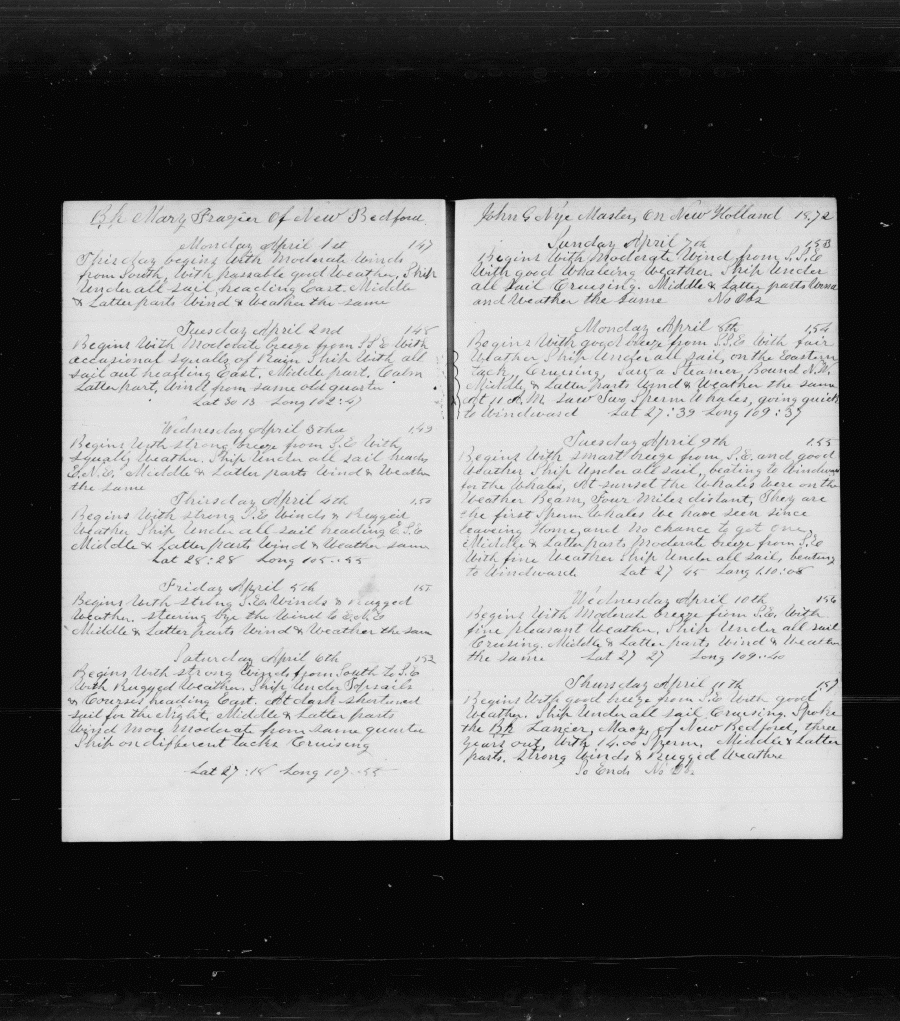 Bk Mary Frazier Of New Bedford
Monday April 1st 147
This day begins With Moderate Winds
from South, With passable good Weather, Ship
Under all sail heading East. Middle
& Latter parts Wind & Weather the same
Tuesday April 2nd 148
Begins With Moderate breeze from S.S.E With
occasional squalls of Rain Ship With all
sail out heading East. Middle part. Calm
Latter part, Wind from same old quarter
Lat 30 13 Long 102:47
Wednesday April 3th 149
Begins With strong breeze from S.E With
squally Weather. Ship Under all sail heads
E.N.E. Middle & Latter parts Wind & Weather
the same
Thirsday April 4th 150
Begins With strong S.E Winds & Rugged
Weather Ship Under all sail heading E.S.E
Middle & Latter parts Wind & Weather same
Lat 28:28 Long 105..55
Friday April 5th 151
Begins With strong S.E. Winds & Rugged
Weather. steering bye the Wind E.N.E
Middle & Latter parts Wind & Weather the sam
Saturday April 6th 152
Begins With strong Winds from South to S.E
With Rugged Weather. Ship Under Topsails
& Courses heading East. At dark shortened
sail for the Night, Middle & Latter parts
Wind More Moderate from same quarter
Ship on different tacks Cruising
Lat 27:18 Long 107..55
John G Nye Master, On New Holland 1872
Sunday April 7th 153
Begins With Moderate Wind from S.S.E
With good Whaleing Weather. Ship Under
all sail Cruising. Middle & Latter parts Wind
and Weather the same No Obs
Monday April 8th 154
Begins With good breeze from S.S.E With fair
Weather Ship Under all sail, on the Eastern
tack, Cruising, Saw a Steamer, Bound N.W.
Middle, & Latter parts Wind & Weather the same
At 11 A.M. saw Two Sperm Whales, going quick
to Windward Lat 27:39 Long 109:37
Tuesday April 9th 155
Begins With smart breeze from S.E. and good
Weather Ship Under all sail, beating to Windward
for the Whales, At sunset the Whales Were on the
Weather Beam, Four Miles distant, They are
the first Sperm Whales We have seen since
leaveing Home, and No chance to get one,
Middle & Latter parts Moderate breeze from S.E
With fine Weather Ship Under all sail, beating
to Windward. Lat 27 45 Long 110:08
Wednesday April 10th 156
Begins With Moderate breeze from S.E. With
fine pleasant Weather, Ship Under all sail
Cruising. Middle & Latter parts Wind & Weather
the same Lat 27 27 Long 109..40
Thursday April 11th 157
Begins With good breeze from S.E With good
Weather. Ship Under all sail Cruising. Spoke
the Bk Lancer, Macy, of New Bedford, three
years out, With 14.00 Sperm. Middle & Latter
parts. Strong Winds & Rugged Weather
So Ends No Obs